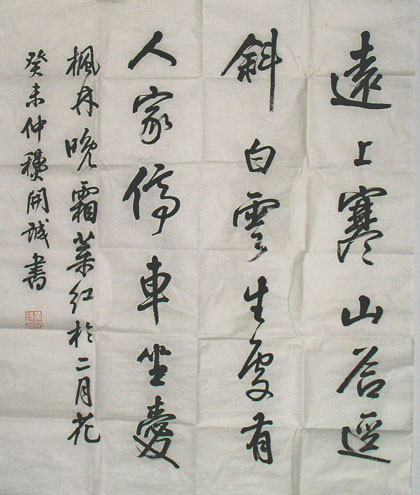 遠上寒山谷逕
斜白雲生處有
人家停車坐愛
楓林晚霜葉紅於二月花
癸未仲穐開誠書